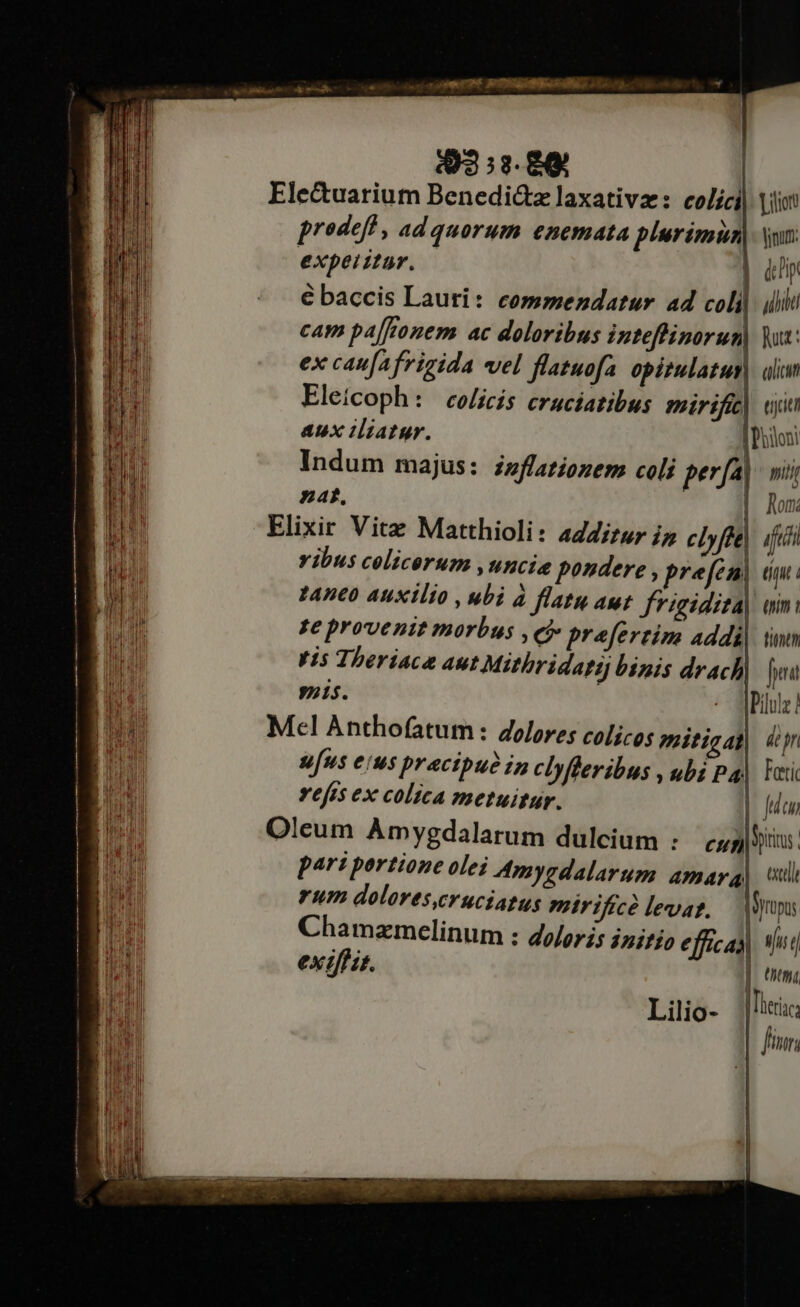 58.
Electuarium Benedictæ laxativæ: colici
prodeſt, ad quorum enemata plurimùm
expetitur.
è baccis Lauri: commendatur ad coli
cam paſſionem ac doloribus inteſtinorum
ex cauſa frigida vel flatuoſa opitulatur
Eleſcoph: colicis cruciatibus mirificè
auxiliatur.
Indum majus: inflationem coli perſa
nat.
Elixir Vitæ Matthioli: additur in clyſte
ribus colicorum, uncia pondere, præſen
taneo auxilio, ubi à flatu aut frigidita
te provenit morbus, & præſertim addi
tis Theriacæ aut Mithridatij binis drach
mis.
Mel Anthoſatum: dolores colicos mitigat
uſus ejus præcipuè in clyſteribus, ubi Pa
reſis ex colica metuitur.
Oleum Amygdalarum dulcium: cum
pari portione olei Amygdalarum amara
rum dolores, cruciatus mirificè levat.
Chamæmelinum: doloris initio efficax
exiſtit.
Lilio-